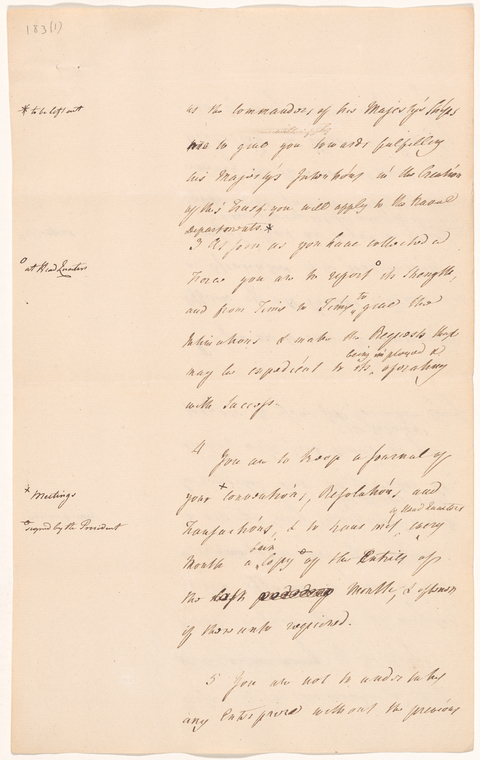 183(1)
* to be left out
as the commanders of his Majesty's Ships
are to give you towards fulfilling
his Majesty's Intentions in the Creation
of this Trust, you will apply to the Naval
Departments. *
3 As soon as you have collected a
o at Head Quarters
Force you are to report o its Strength,
and from Time to Time, to give the
Intimations & make the Requests that
being employed &
may be expedient to its operating
with Success.
4
You are to keep a Journal of
x Meetings
your x Convocations, Resolutions and
o signed by the President
Transactions, & to have sent every
Head Quarters
Month a fair Copy o of the Entries of
the last Month, & oftener
if thereunto required.
5 You are not to undertake
any Enterprize without the previous